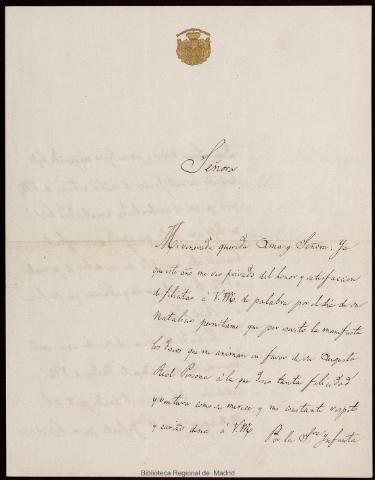 Señora
Mi venerada querida Ama y Señora: Ya
que este año me veo privado del honor y satisfaccion
de felicitar á V.M. de palabra por el dia de su
Natalicio permitame que por escrito la manifieste
los deseos que me animan en favor de su Augusta
Real Persona á la que deseo tanta felicidad
y ventura como se merece, y mi constante respeto
y cariño desea á V.M.
Por la Sra Infanta
Biblioteca Regional de Madrid